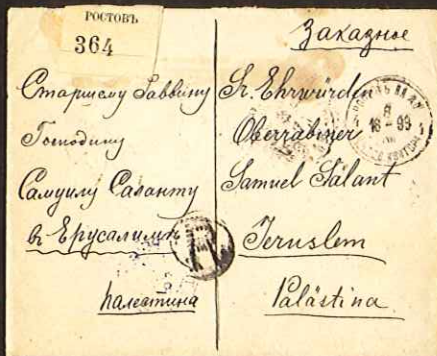 РОСТОВЪ
364
Заказное
Старшему Раввину
Господину
Самуилу Саланту
въ Ерусалимѣ
Палестина
Sr. Ehrwürden
Oberrabiner
Samuel Salant
Jeruslem
Palästina